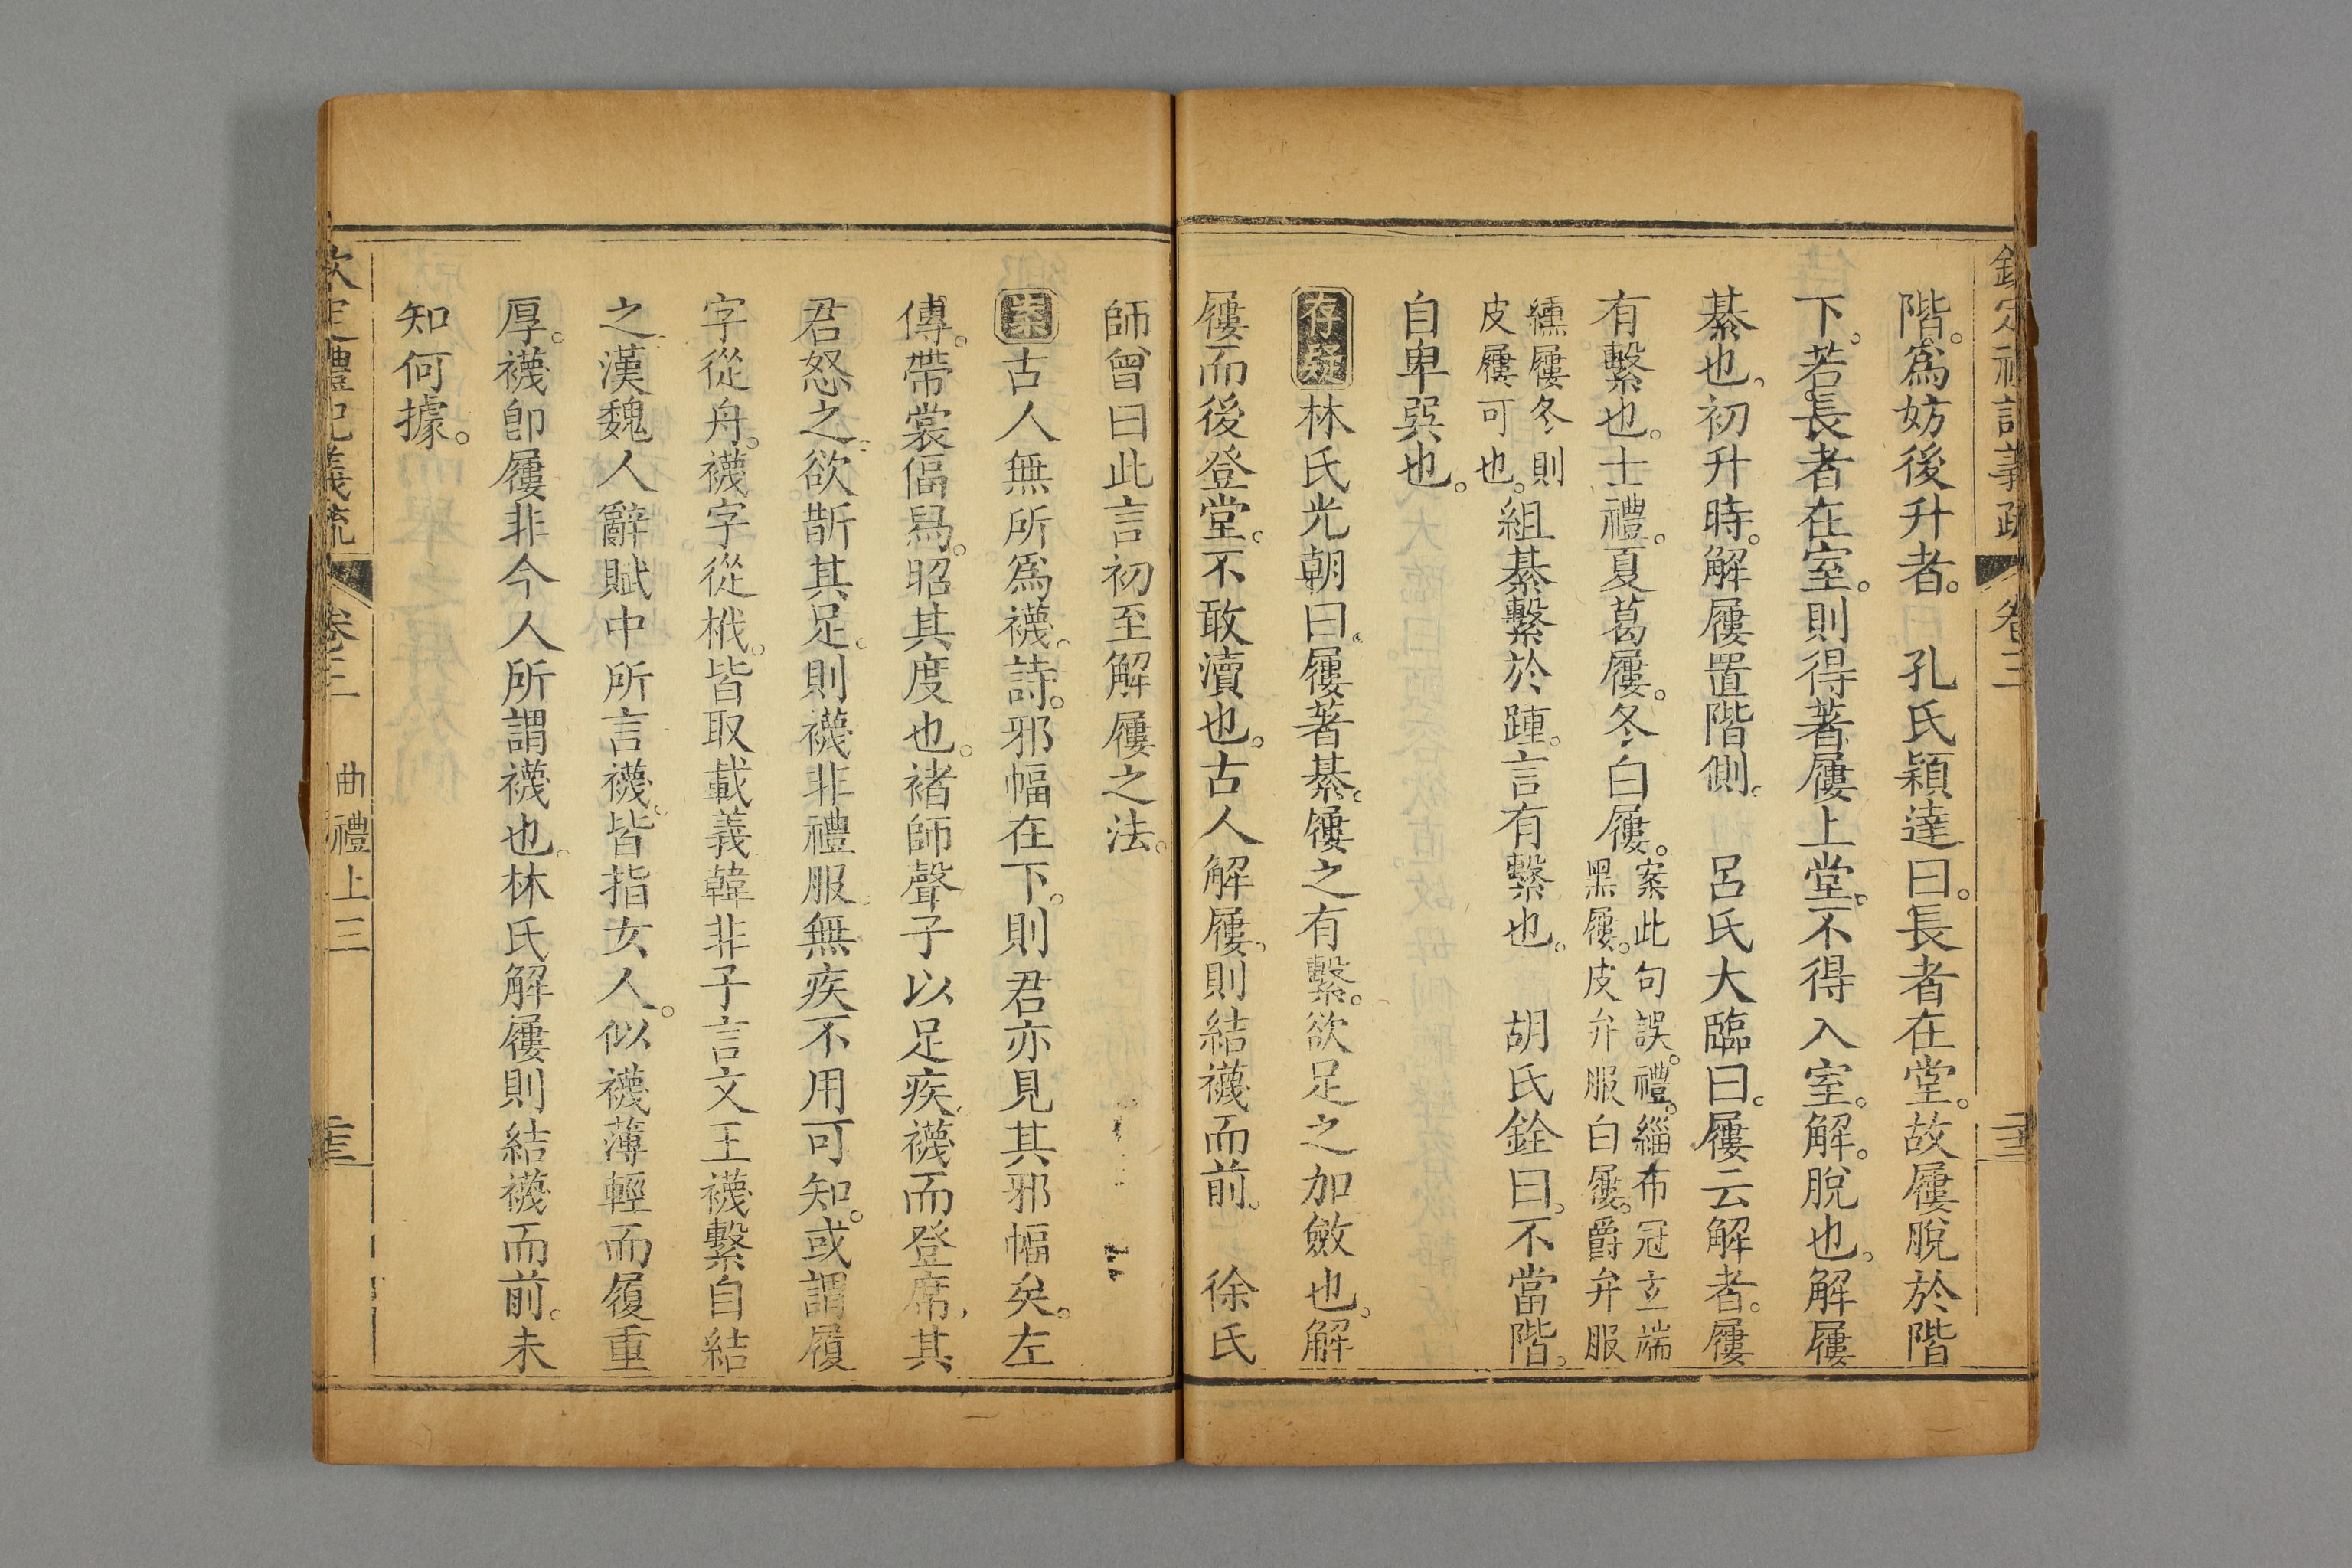 階。爲妨後升者。 孔氏穎達曰。長者在堂。故屨脫於階
下。若長者在室。則得著屨上堂。不得入室。解。脫也。解屨
綦也。初升時。解屨置階側。 呂氏大臨曰。屨云解者。屨
有繫也。士禮。夏葛屨。冬白屨。案此句誤。禮。緇布冠玄端
黑屨。皮弁服白屨。爵弁服
纁屨冬則
皮屨可也。組綦繫於踵。言有繫也。 胡氏銓曰。不當階。
自卑巽也。
存疑 林氏光朝曰。屨著綦。屨之有繫。欲足之加斂也。解
屨而後登堂。不敢瀆也。古人解屨。則結襪而前。 徐氏
師曾曰此言初至解屨之法。
案 古人無所爲襪。詩。邪幅在下。則君亦見其邪幅矣。左
傳。帶裳偪舄。昭其度也。褚師聲子以足疾。襪而登席。其
君怒之。欲斮其足。則襪非禮服。無疾不用可知。或謂履
字從舟。襪字從栰。皆取載義韓非子言文王襪繫自結
之。漢魏人辭賦中所言襪。皆指女人。似襪薄輕而履重
厚。襪卽屨非今人所謂襪也。林氏解屨則結襪而前。未
知何據。
欽定禮記義疏 卷三 曲禮上三